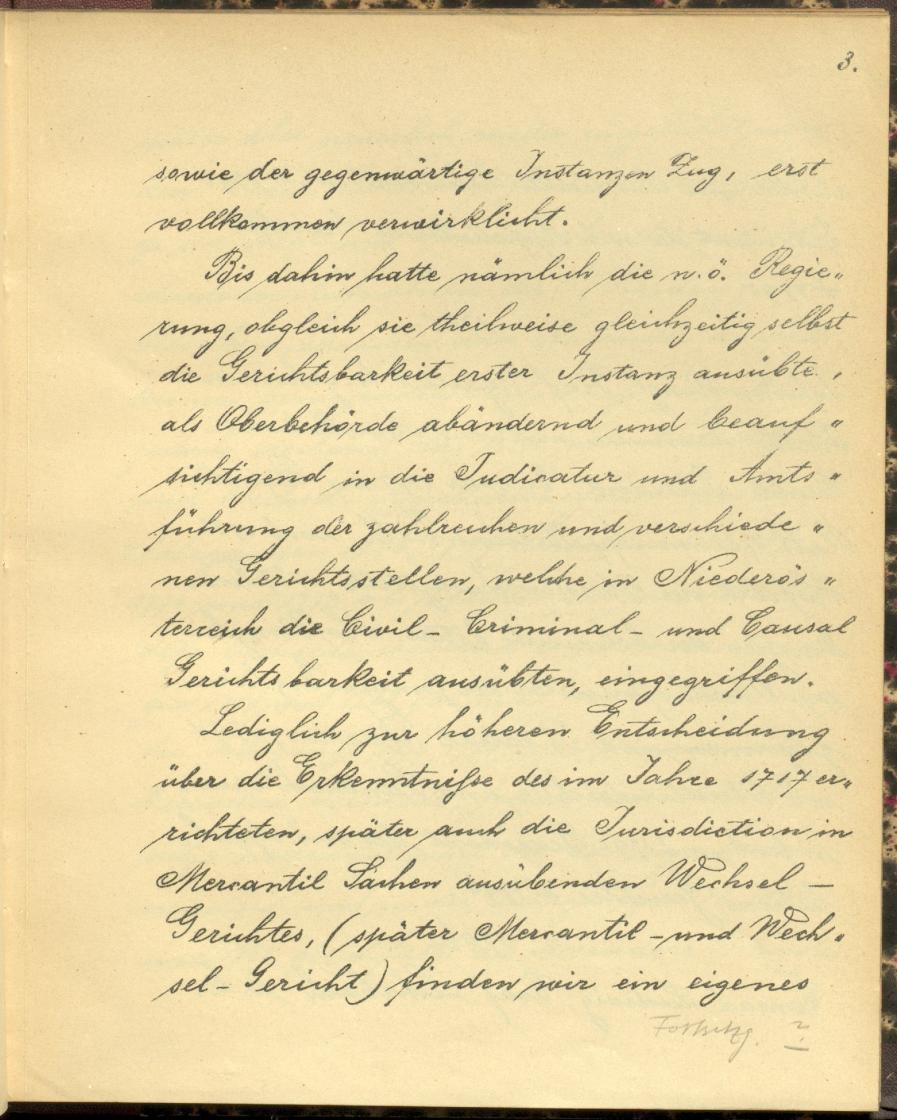 3.
sowie der gegenwärtige Instanzen Zug, erst
vollkommen verwirklicht.
Bis dahin hatte nämlich die n. ö. Regie„
rung, obgleich sie theilweise gleichzeitig selbst
die Gerichtsbarkeit erster Instanz ausübte,
als Oberbehörde abändernd und beauf„
sichtigend in die Judicatur und Amts„
führung der zahlreichen und verschiede„
nen Gerichtsstellen, welche in Niederös„
terreich die Civil- Criminal- und Causal
Gerichtsbarkeit ausübten, eingegriffen.
Lediglich zur höheren Entscheidung
über die Erkenntniſse des im Jahre 1717 er„
richteten, später auch die Jurisdiction in
Mercantil Sachen ausübenden Wechsel-
Gerichtes, (später Mercantil- und Wech„
sel-Gericht) finden wir ein eigenes
Fortsetzg. ?